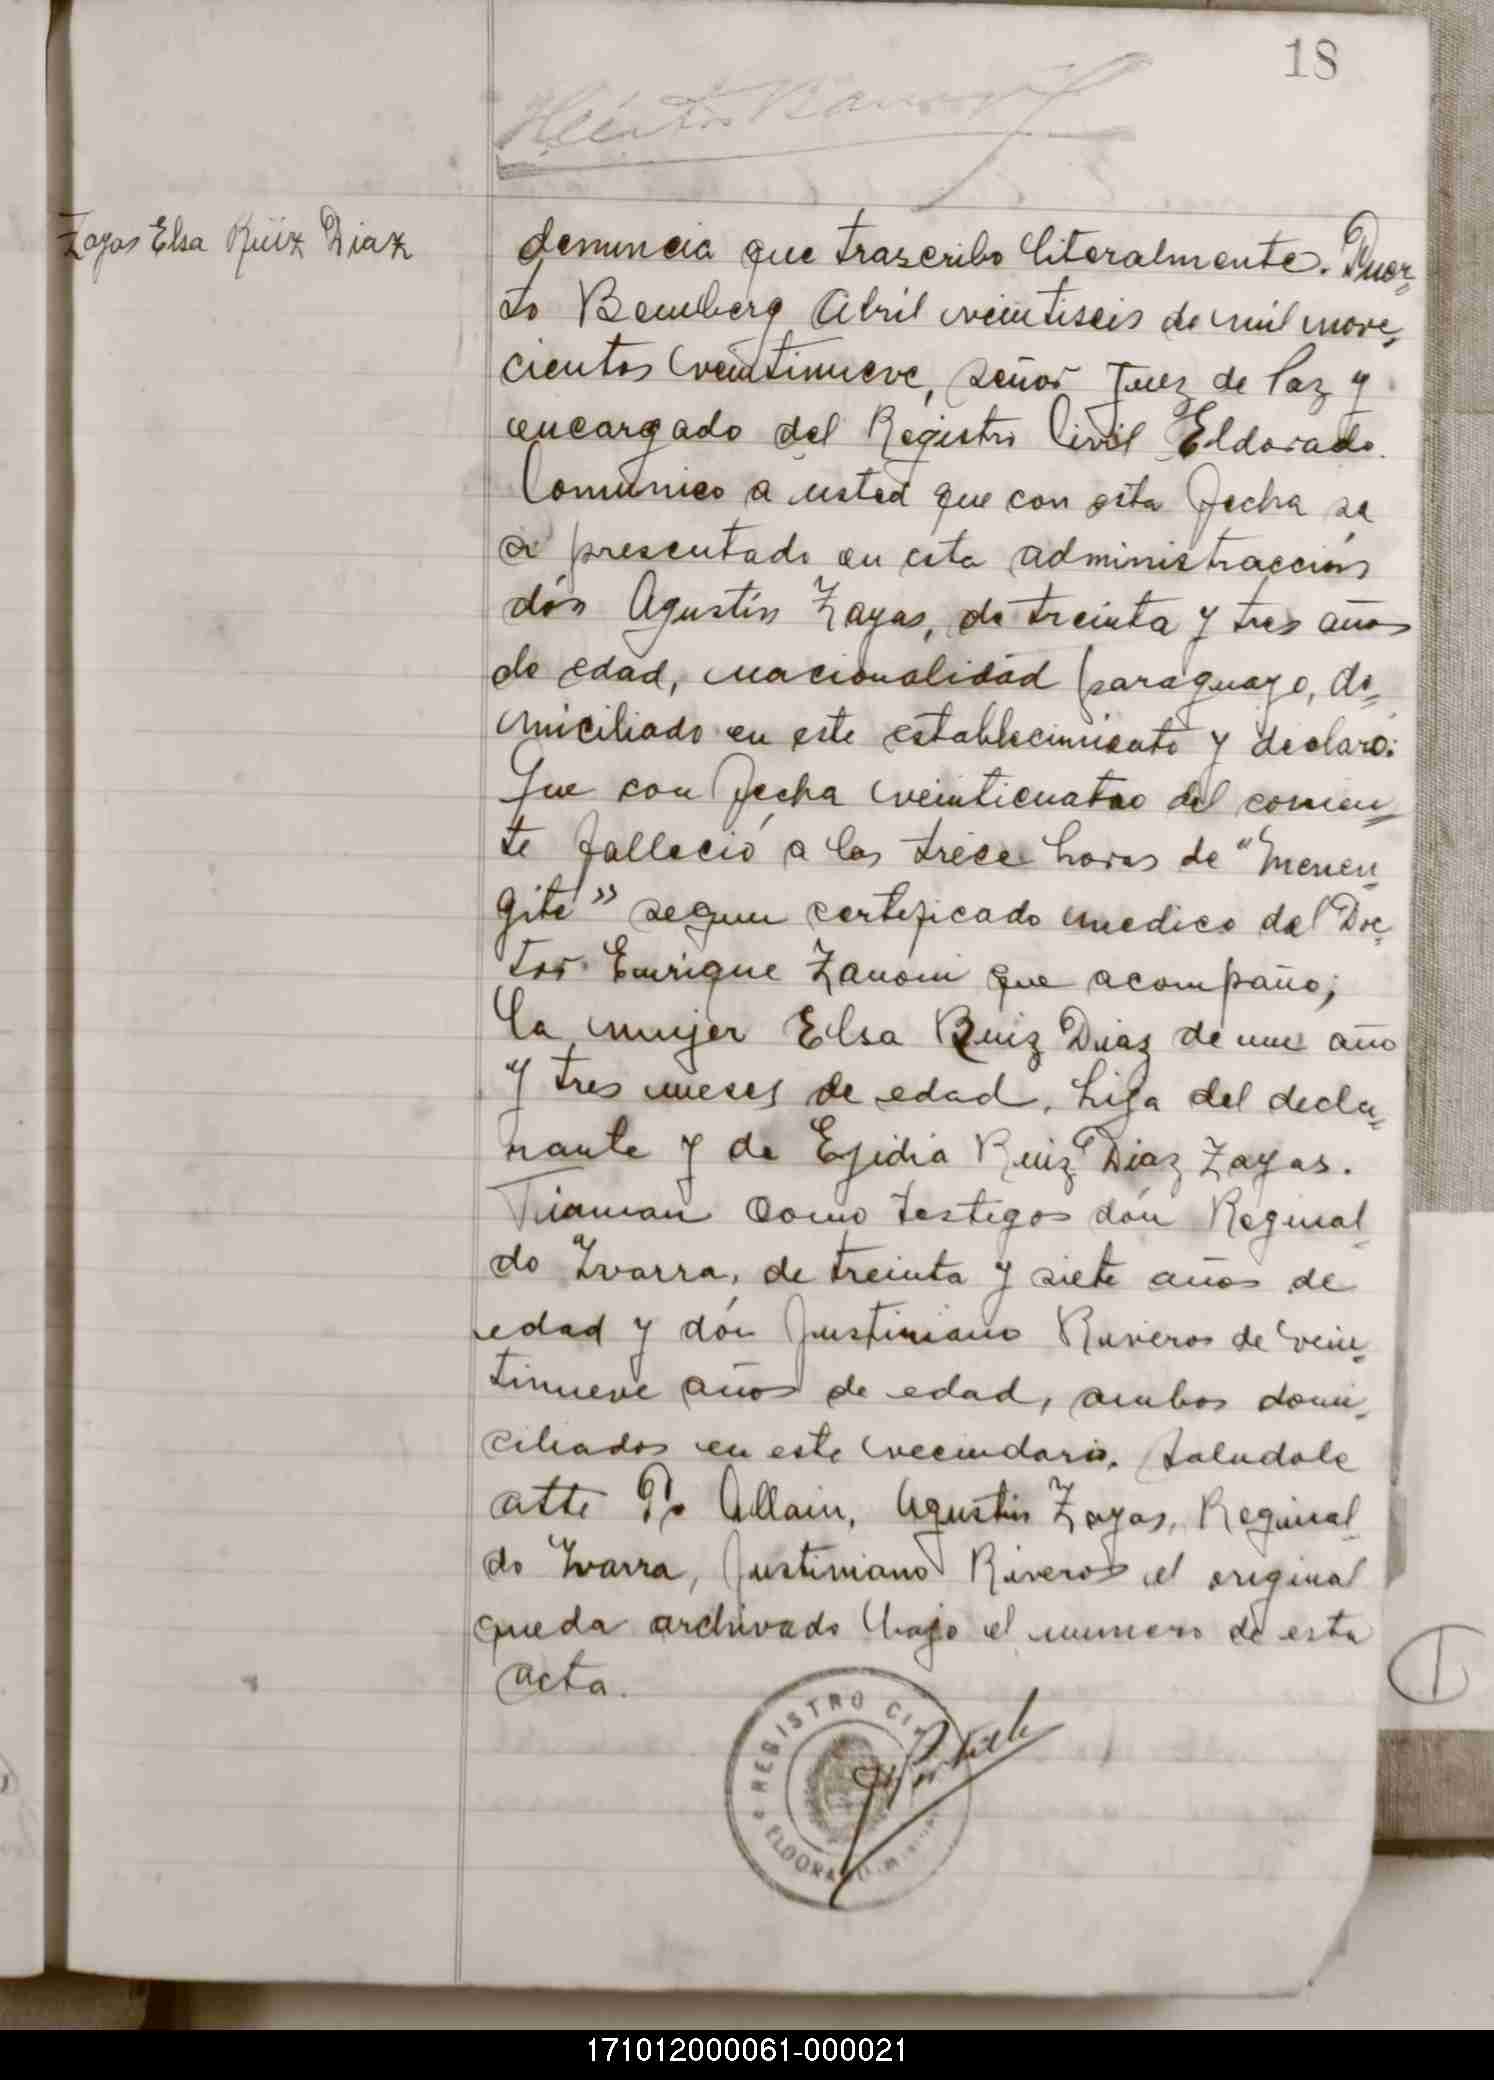 18
Zayas Elsa Ruiz Diaz
denuncia que trascribo literalmente. Puer=
to Bemberg Abril veintiseis de mil nove=
cientos veintinueve, señor Juez de Paz y
encargado del Registro Civil Eldorado.
Comunico a usted que con esta fecha se
a presentado en esta administracción
dón Agustín Zayas, de treinta y tres años
de edad, nacionalidad paraguayo, do=
miciliado en este establecimiento y declaró:
Que con fecha veinticuatro del corrien=
te falleció a las trece horas de "menen=
gite" segun certificado medico del Doc=
tor Enrique Zanoni que acompaño;
la mujer Elsa Ruiz Diaz de un año
y tres meses de edad, hija del decla=
rante y de Ejidia Ruiz Diaz Zayas.
Firman como testigos dón Reginal=
do Ivarra, de treinta y siete años de
edad y dón Justiniano Riveros de vein=
tinueve años de edad, ambos domi=
ciliados en este vecindario. Saludale
atte Po Allain, Agustin Zayas, Reginal=
do Ivarra, Justiniano Riveros el original
queda archivado bajo el numero de esta
acta.
REGISTRO CI
ELDORA
171012000061-000021